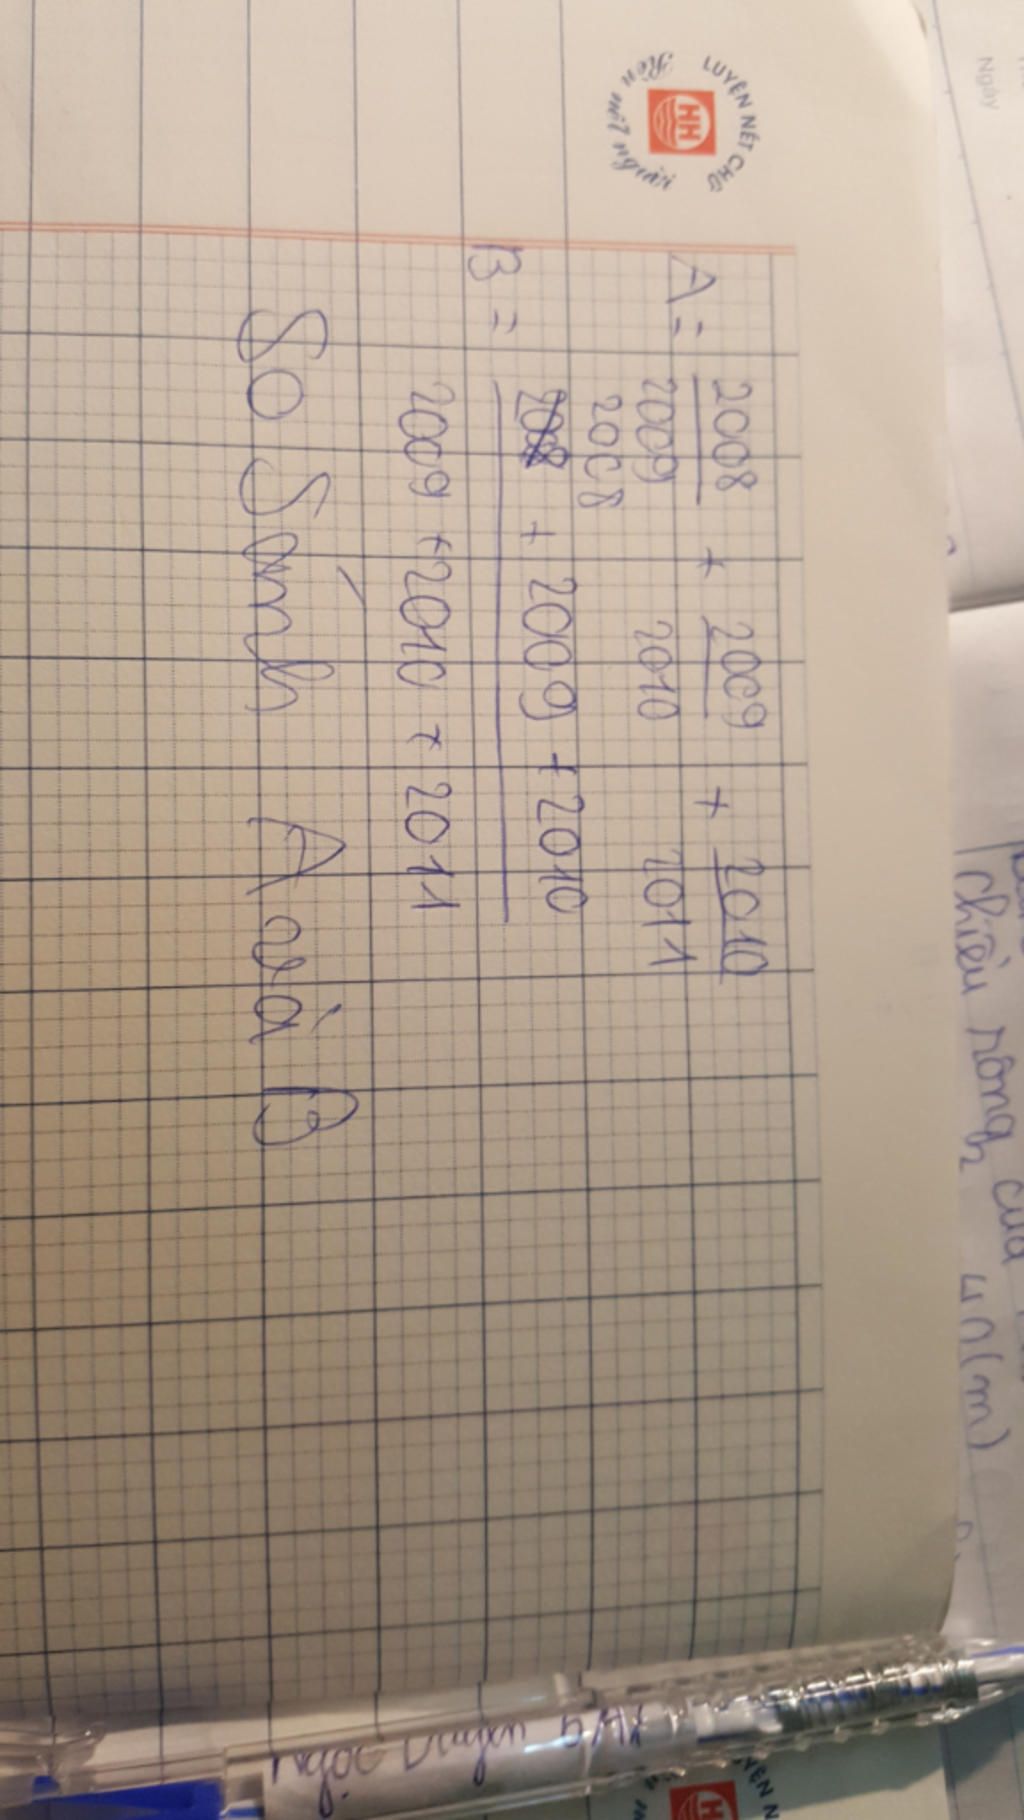 LUYỆN NÉT CHỮ
Rèn nết người
HH
A = 2008/2009 + 2009/2010 + 2010/2011
B = 2008 + 2009 + 2010
2009 + 2010 + 2011
So Sánh A và B
Ngày
chiều rộng của
4n(m)
YỆN N
HH